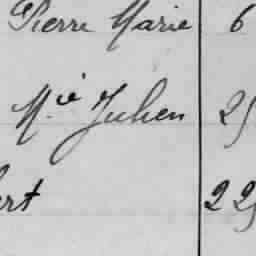 Pierre Marie 6
Mie Julien 25
ert 225